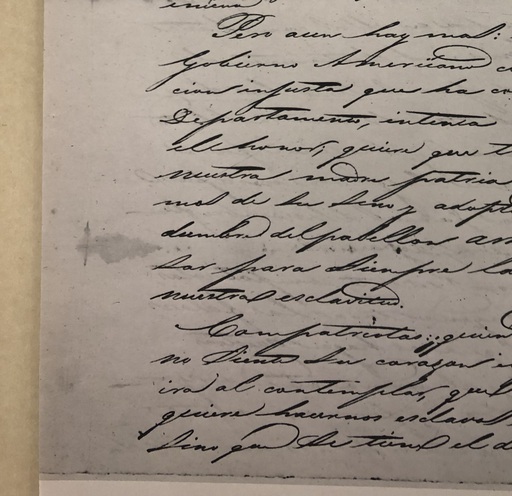 Pero aun hay mas:
Gobierno Americano
cion injusta que ha
Departamento, intenta
el honor, quiere que
nuestra madre patria
mos de su seno y
dumbre del pabellon
sar para siempre la
nuestra esclavitud.
Compatriotas: quien
no siente su corazon
ira al contemplar, que
quiere hacernos esclavos
sino que se tiene el